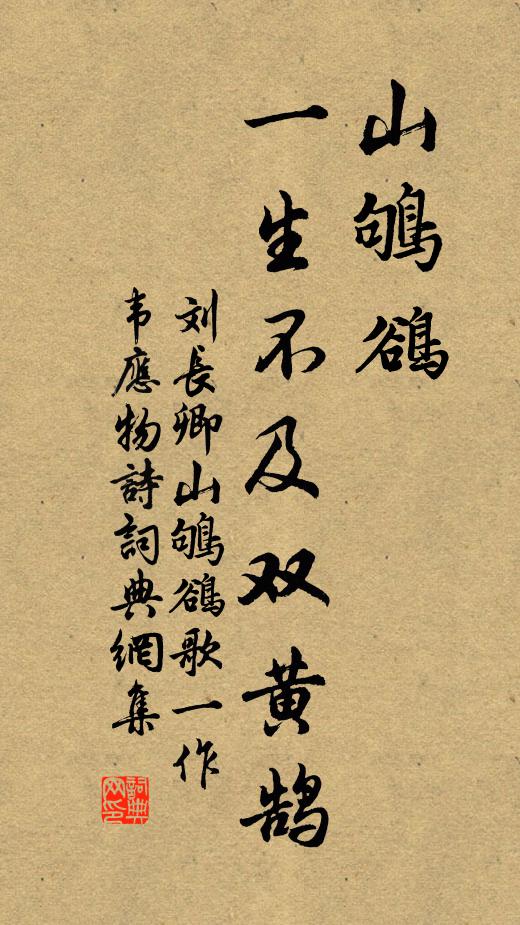 山鴝鵒
一生不及双黄鹄
刘長卿山鴝鵒歌一作
韦應物詩詞典網集
詞典
网印